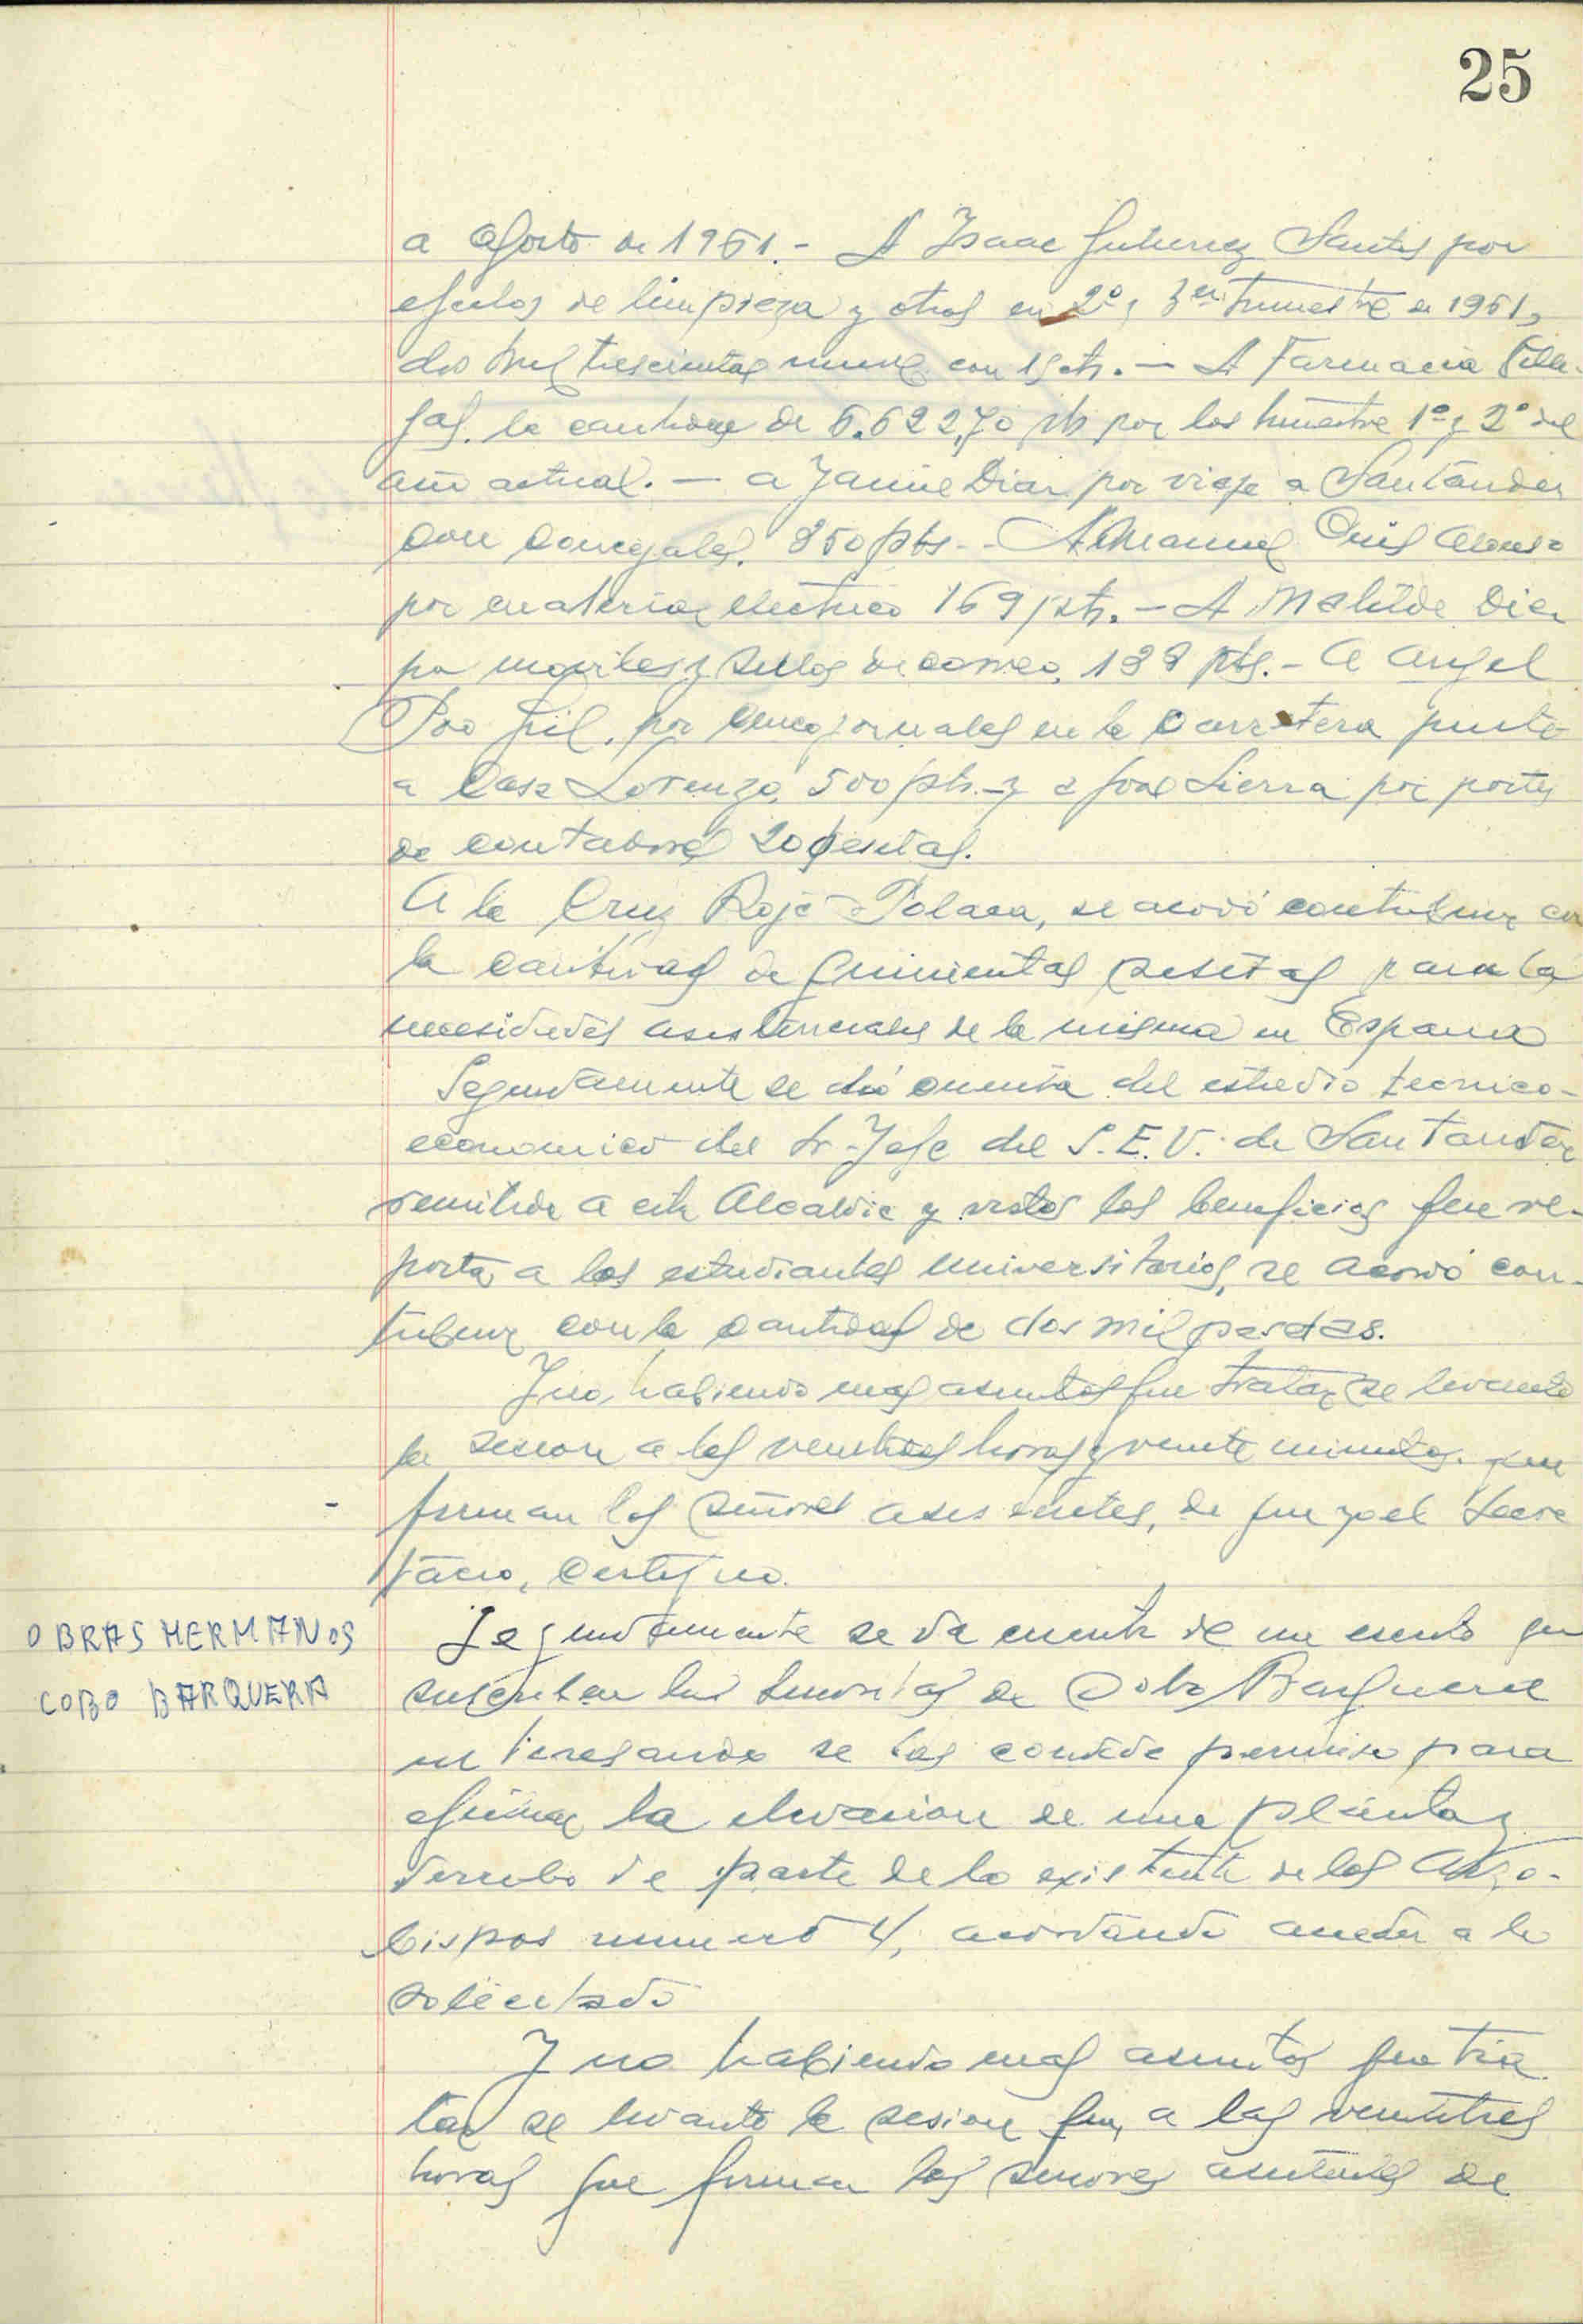 25
a Agosto de 1961.- A Isaac Gutierrez Santos por
efectos de limpieza y otros en 2º y 3er trimestre de 1961,
dos mil trescientas nueve con 15 cts. — A Farmacia Ville-
gas. la cantidad de 6.622,70 pts por los trimestre 1º y 2º del
año actual. — a Jaime Diaz por viaje a Santander
con concejales. 850 pts - A Manuel Alonso
por material electrico 169 pts. — A Matilde Diez
por moviles y sellos de correo, 188 pts. - A Angel
Poo Gil, por cinco jornales en la carretera junto
a Casa Lorenzo, 500 pts. y a José Sierra por portes
de contadores 20 pesetas.
A la Cruz Roja Polaca, se acordó contribuir con
la cantidad de quinientas pesetas para las
necesidades asistenciales de la misma en España
Seguidamente se dió cuenta del estudio tecnico-
economico del Sr. Jefe del S.E.U. de Santander
remitido a esta Alcaldia y vistos los beneficios que re-
porta a los estudiantes universitarios, se acordó con-
tribuir con la cantidad de dos mil pesetas.
Y no habiendo mas asuntos que tratar se levanto
la sesion a las veintidos horas y veinte minutos. que
firman los señores asistentes, de que yo el Secre
tario, Certifico.
OBRAS HERMANOS
COBO BARQUERA
Seguidamente se da cuenta de un escrito que
suscriben las Señoritas de Cobo Barquera
interesando se las conceda permiso para
efectuar la elevacion de una planta y
derribo de parte de lo existente de los Arzo-
bispos numero 4, acordando acceder a lo
solicitado
Y no habiendo mas asuntos que tra
tar se levanto la sesion a las veintitres
horas que firman los señores asistentes de